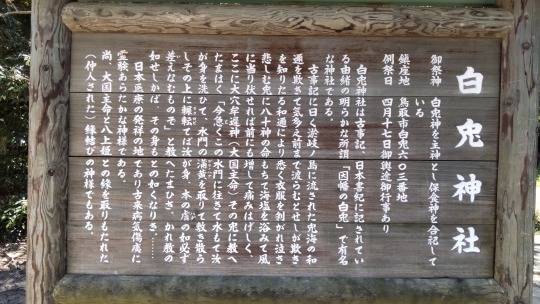 白兎神社
御祭神　白兎神を主神とし保食神を合祀して
いる
鎮座地　鳥取市白兎六〇三番地
例祭日　四月十七日御輿渡御行事あり
白兎神社は古事記、日本書紀に記されてい
る由緒の明らかな所謂「因幡の白兎」で有名
な神社である。
古事記に曰く淤岐ノ島に流された兎海の和
邇を欺きて気多之前まで渡らむとせしが欺き
を知りたる和邇により悉く衣服を剥がれ泣き
悲しむ兎に八十神の命もちて海塩を浴みて風
に当り伏せれば前にも増して痛みはげしく、
ここに大穴牟遅神（大国主命）その兎に教へ
たまはく「今急くこの水門に往きて水もて汝
が身を洗ひて、水門の蒲黄を取りて敷き散ら
しその上に輾転ては汝が身、本の膚の如必ず
差えなむものぞ」と教へたまひき、かれ教の
如せしかば、その身もとの如くなりき、……
日本医療の発祥の地であり古来病気傷痍に
霊験あらたかな神様である。
尚、大国主命と八上姫との縁を取りもたれた
（仲人された）縁結びの神様でもある。